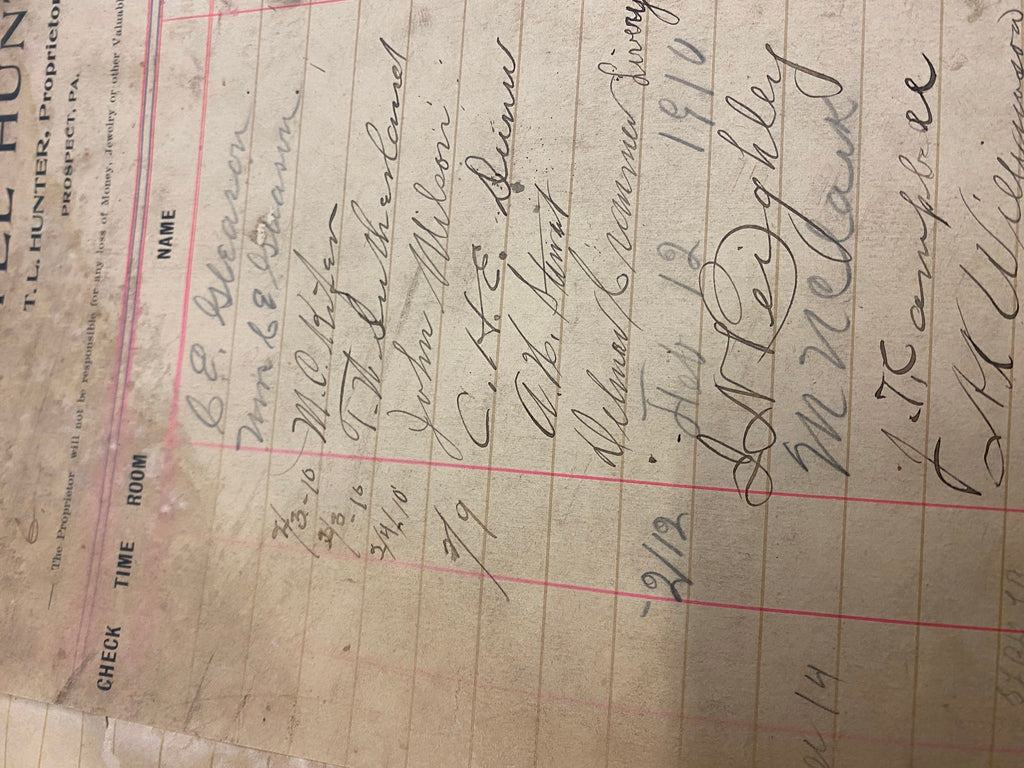 T. L. HUNTER, Proprietor
PROSPECT, PA.
The Proprietor will not be responsible for any loss of Money, Jewelry or other Valuabl
CHECK TIME ROOM NAME
C. E. Gleason
C E Gleason
2/3-10 M. C. Kifer
2/3-10 T. W. Sutherland
2/4/10 John Wilson
2/9 C. H. E. Dunn
A. K. Starat
Delmar Livery
2/12 Feb 12 1910
Peighley
M McClark
14
J. T. Campbell
K Williamson